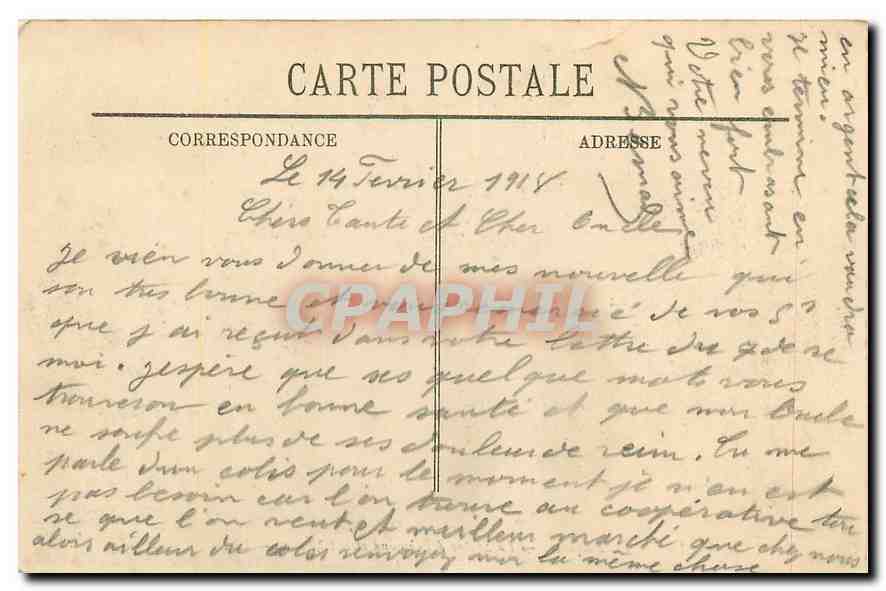 CARTE POSTALE
CORRESPONDANCE
ADRESSE
Le 14 Fevrier 1918
Chers Tante et Cher Oncle
Je vien vous donner de mes nouvelle qui
son tres bonne et vous de vos 5 f
que j'ai reçut dans votre lettre du 7 de se
moi. Jespère que ses quelque mots vous
trouveron en bonne santé et que mon Oncle
ne soufre plus de ses douleur de rein. Tu me
parle d'un colis pour le moment je n'en est
pas besoin car l'on trouve au coopérative tou
se que l'on veut et meilleur marché que chez nous
alors ailleur du colis renvoyez moi la même chose
en argent cela vaudra
mieu.
Je termine en
vous embrasant
bien fort
Votre neveu
qui vous aime
CPAPHIL